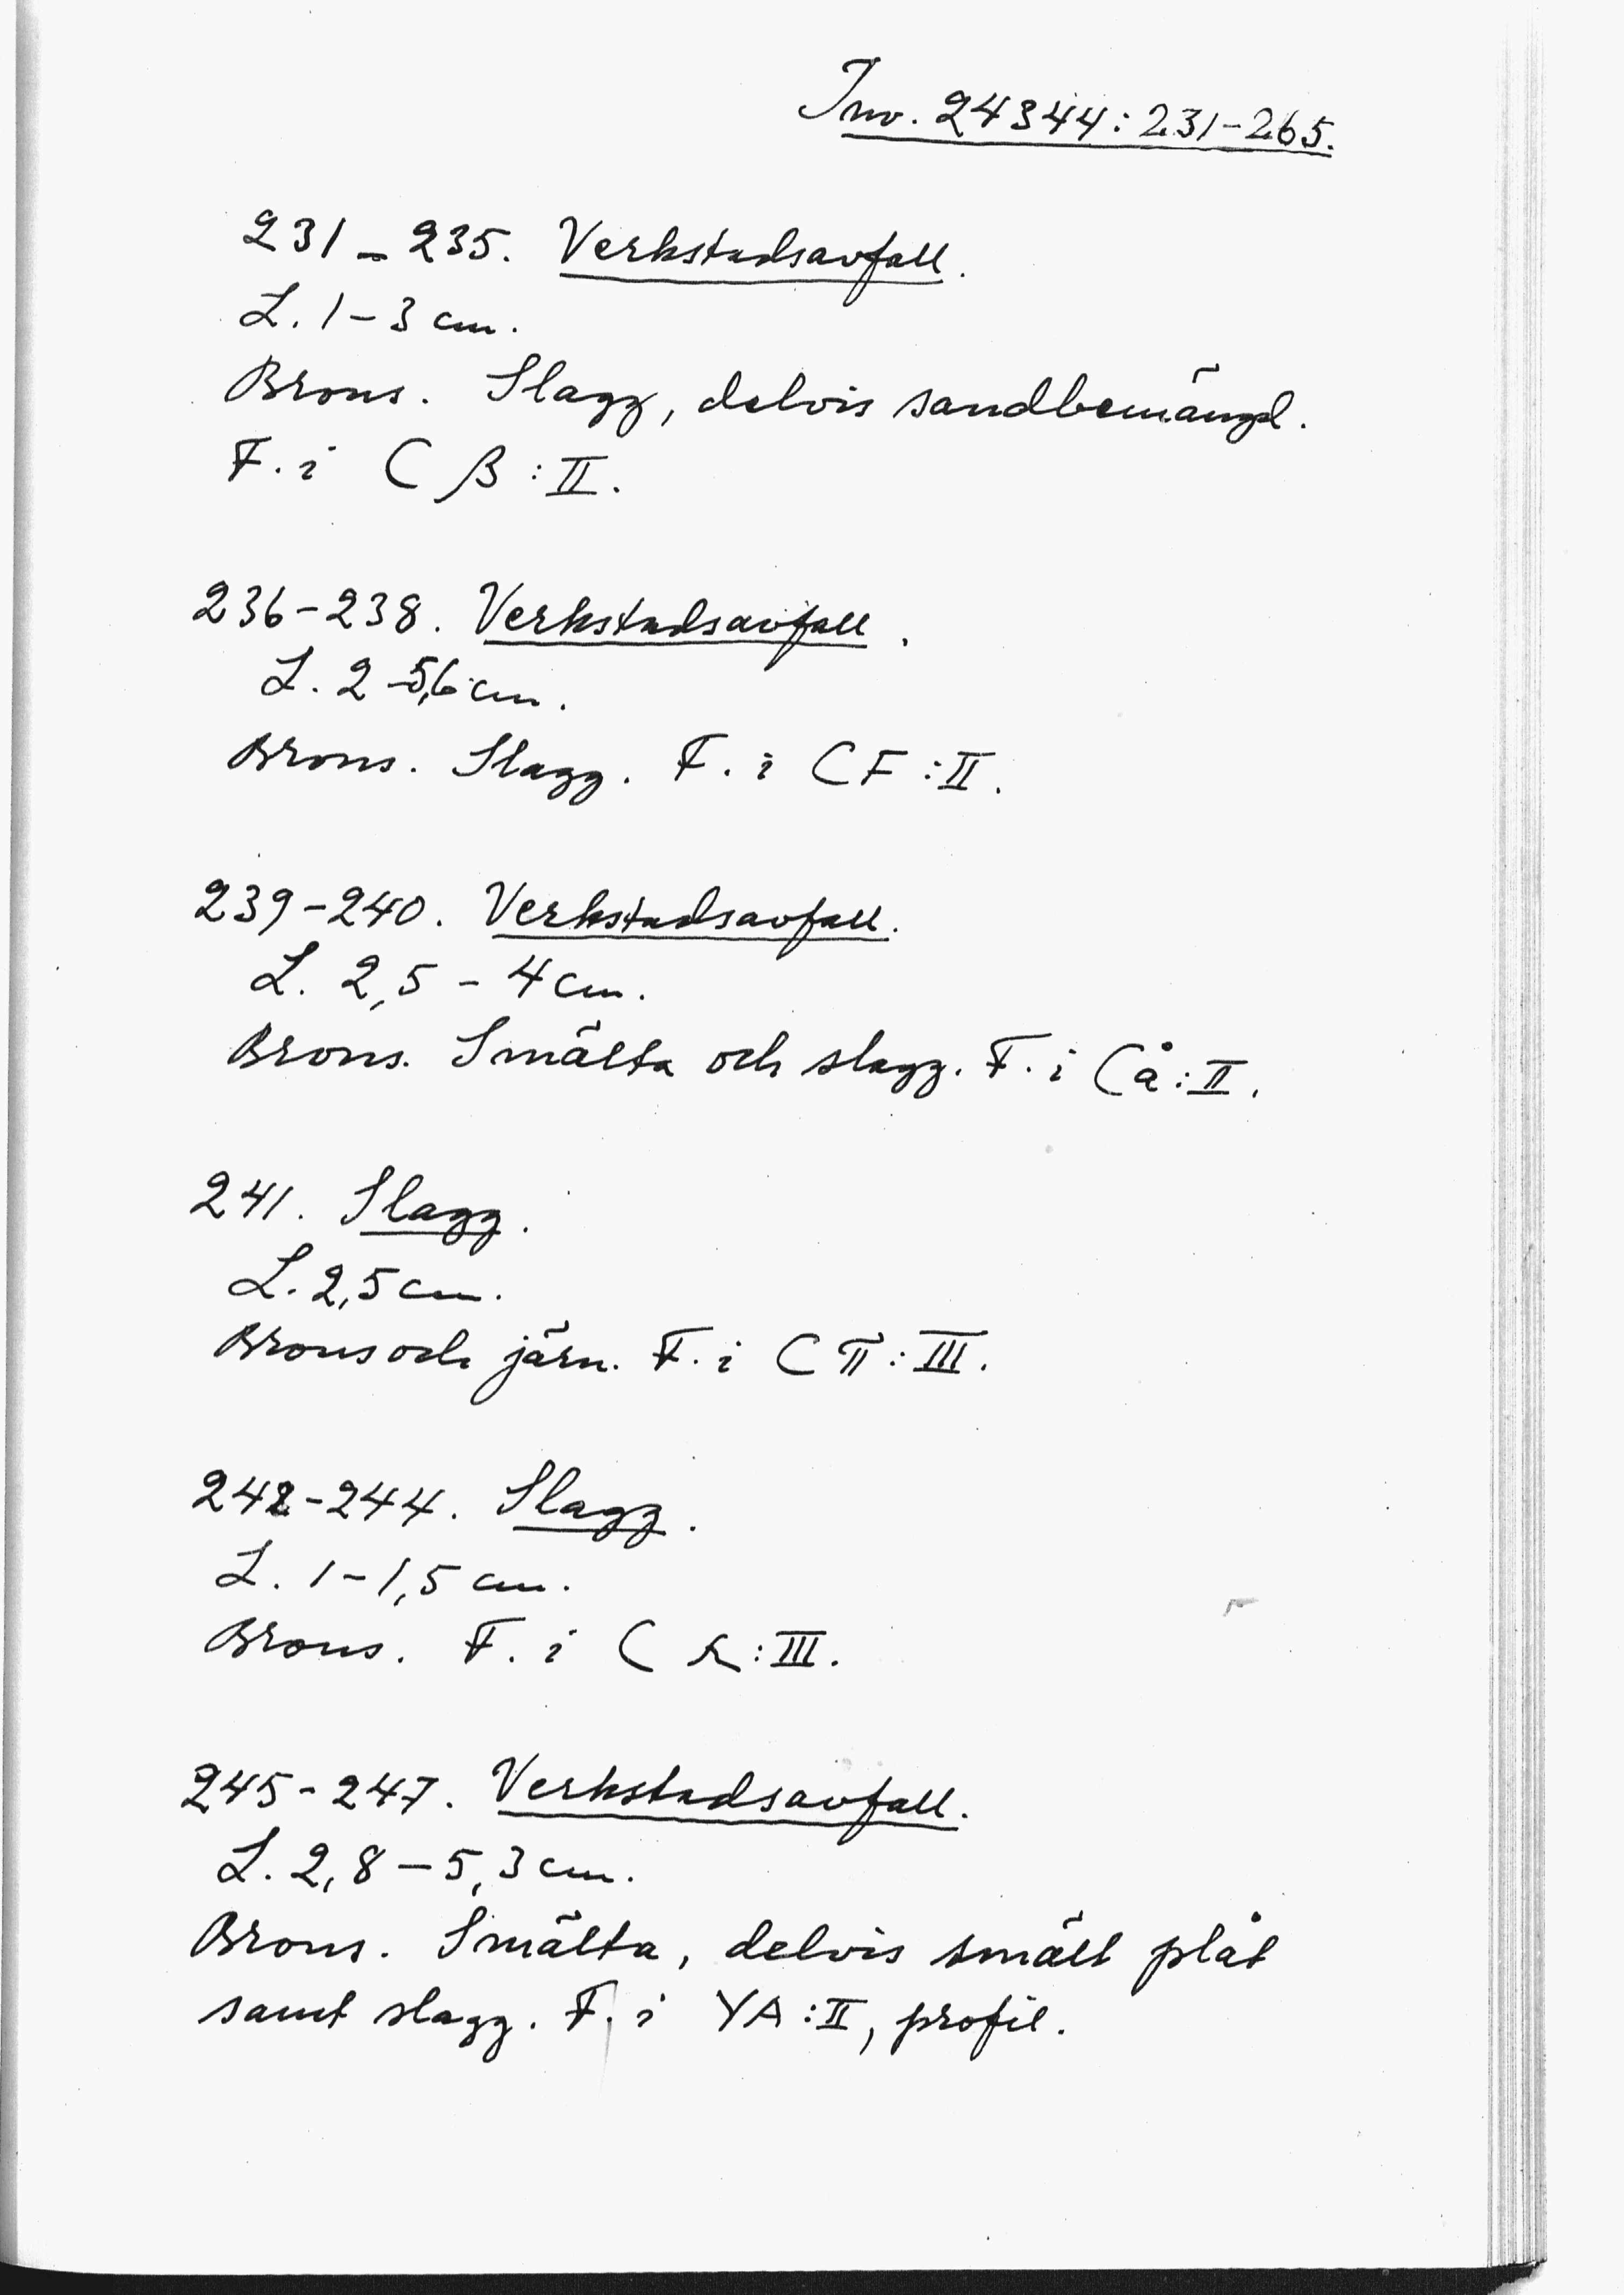 Inv. 24344:231-265.
231-235. Verkstadsavfall.
L. 1-3 cm.
Brons. Slagg, delvis sandbemängd.
F. i C β:II.
236-238. Verkstadsavfall.
L. 2-5,6 cm.
Brons. Slagg. F. i CF:II.
239-240. Verkstadsavfall.
L. 2,5 - 4 cm.
Brons. Smälta och slagg. F. i Cå:II.
241. Slagg.
L. 2,5 cm.
Brons och järn. F. i C π:III.
242-244. Slagg.
L. 1-1,5 cm.
Brons. F. i C :III.
245-247. Verkstadsavfall.
L. 2,8-5,3 cm.
Brons. Smälta, delvis smält plåt
samt slagg. F. i YA:II, profil.